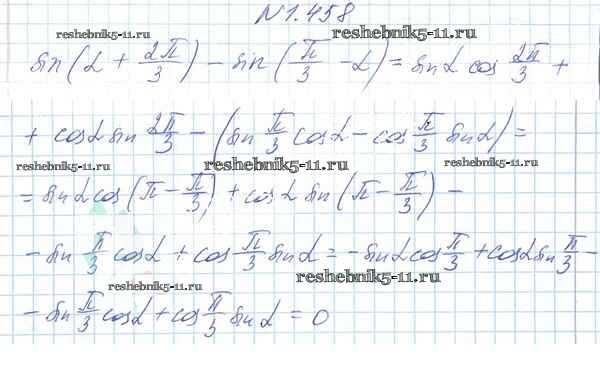 № 1.458
reshebnik5-11.ru reshebnik5-11.ru
sin(α + 2π/3) - sin(π/3 - α) = sinα cos 2π/3 +
+ cosα sin 2π/3 - (sin π/3 cosα - cos π/3 sinα) =
reshebnik5-11.ru reshebnik5-11.ru reshebnik5-11.ru
= sinα cos(π - π/3) + cosα sin(π - π/3) -
- sin π/3 cosα + cos π/3 sinα = - sinα cos π/3 + cosα sin π/3 -
reshebnik5-11.ru reshebnik5-11.ru
- sin π/3 cosα + cos π/3 sinα = 0